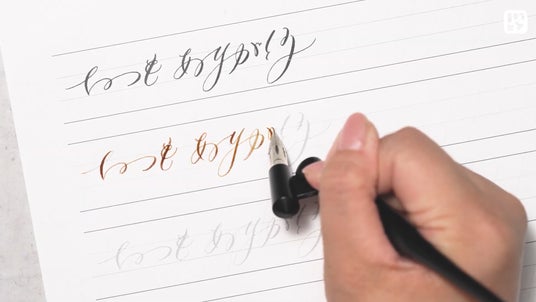 いつも ありがとう
いつも ありがとう
いつも ありがとう